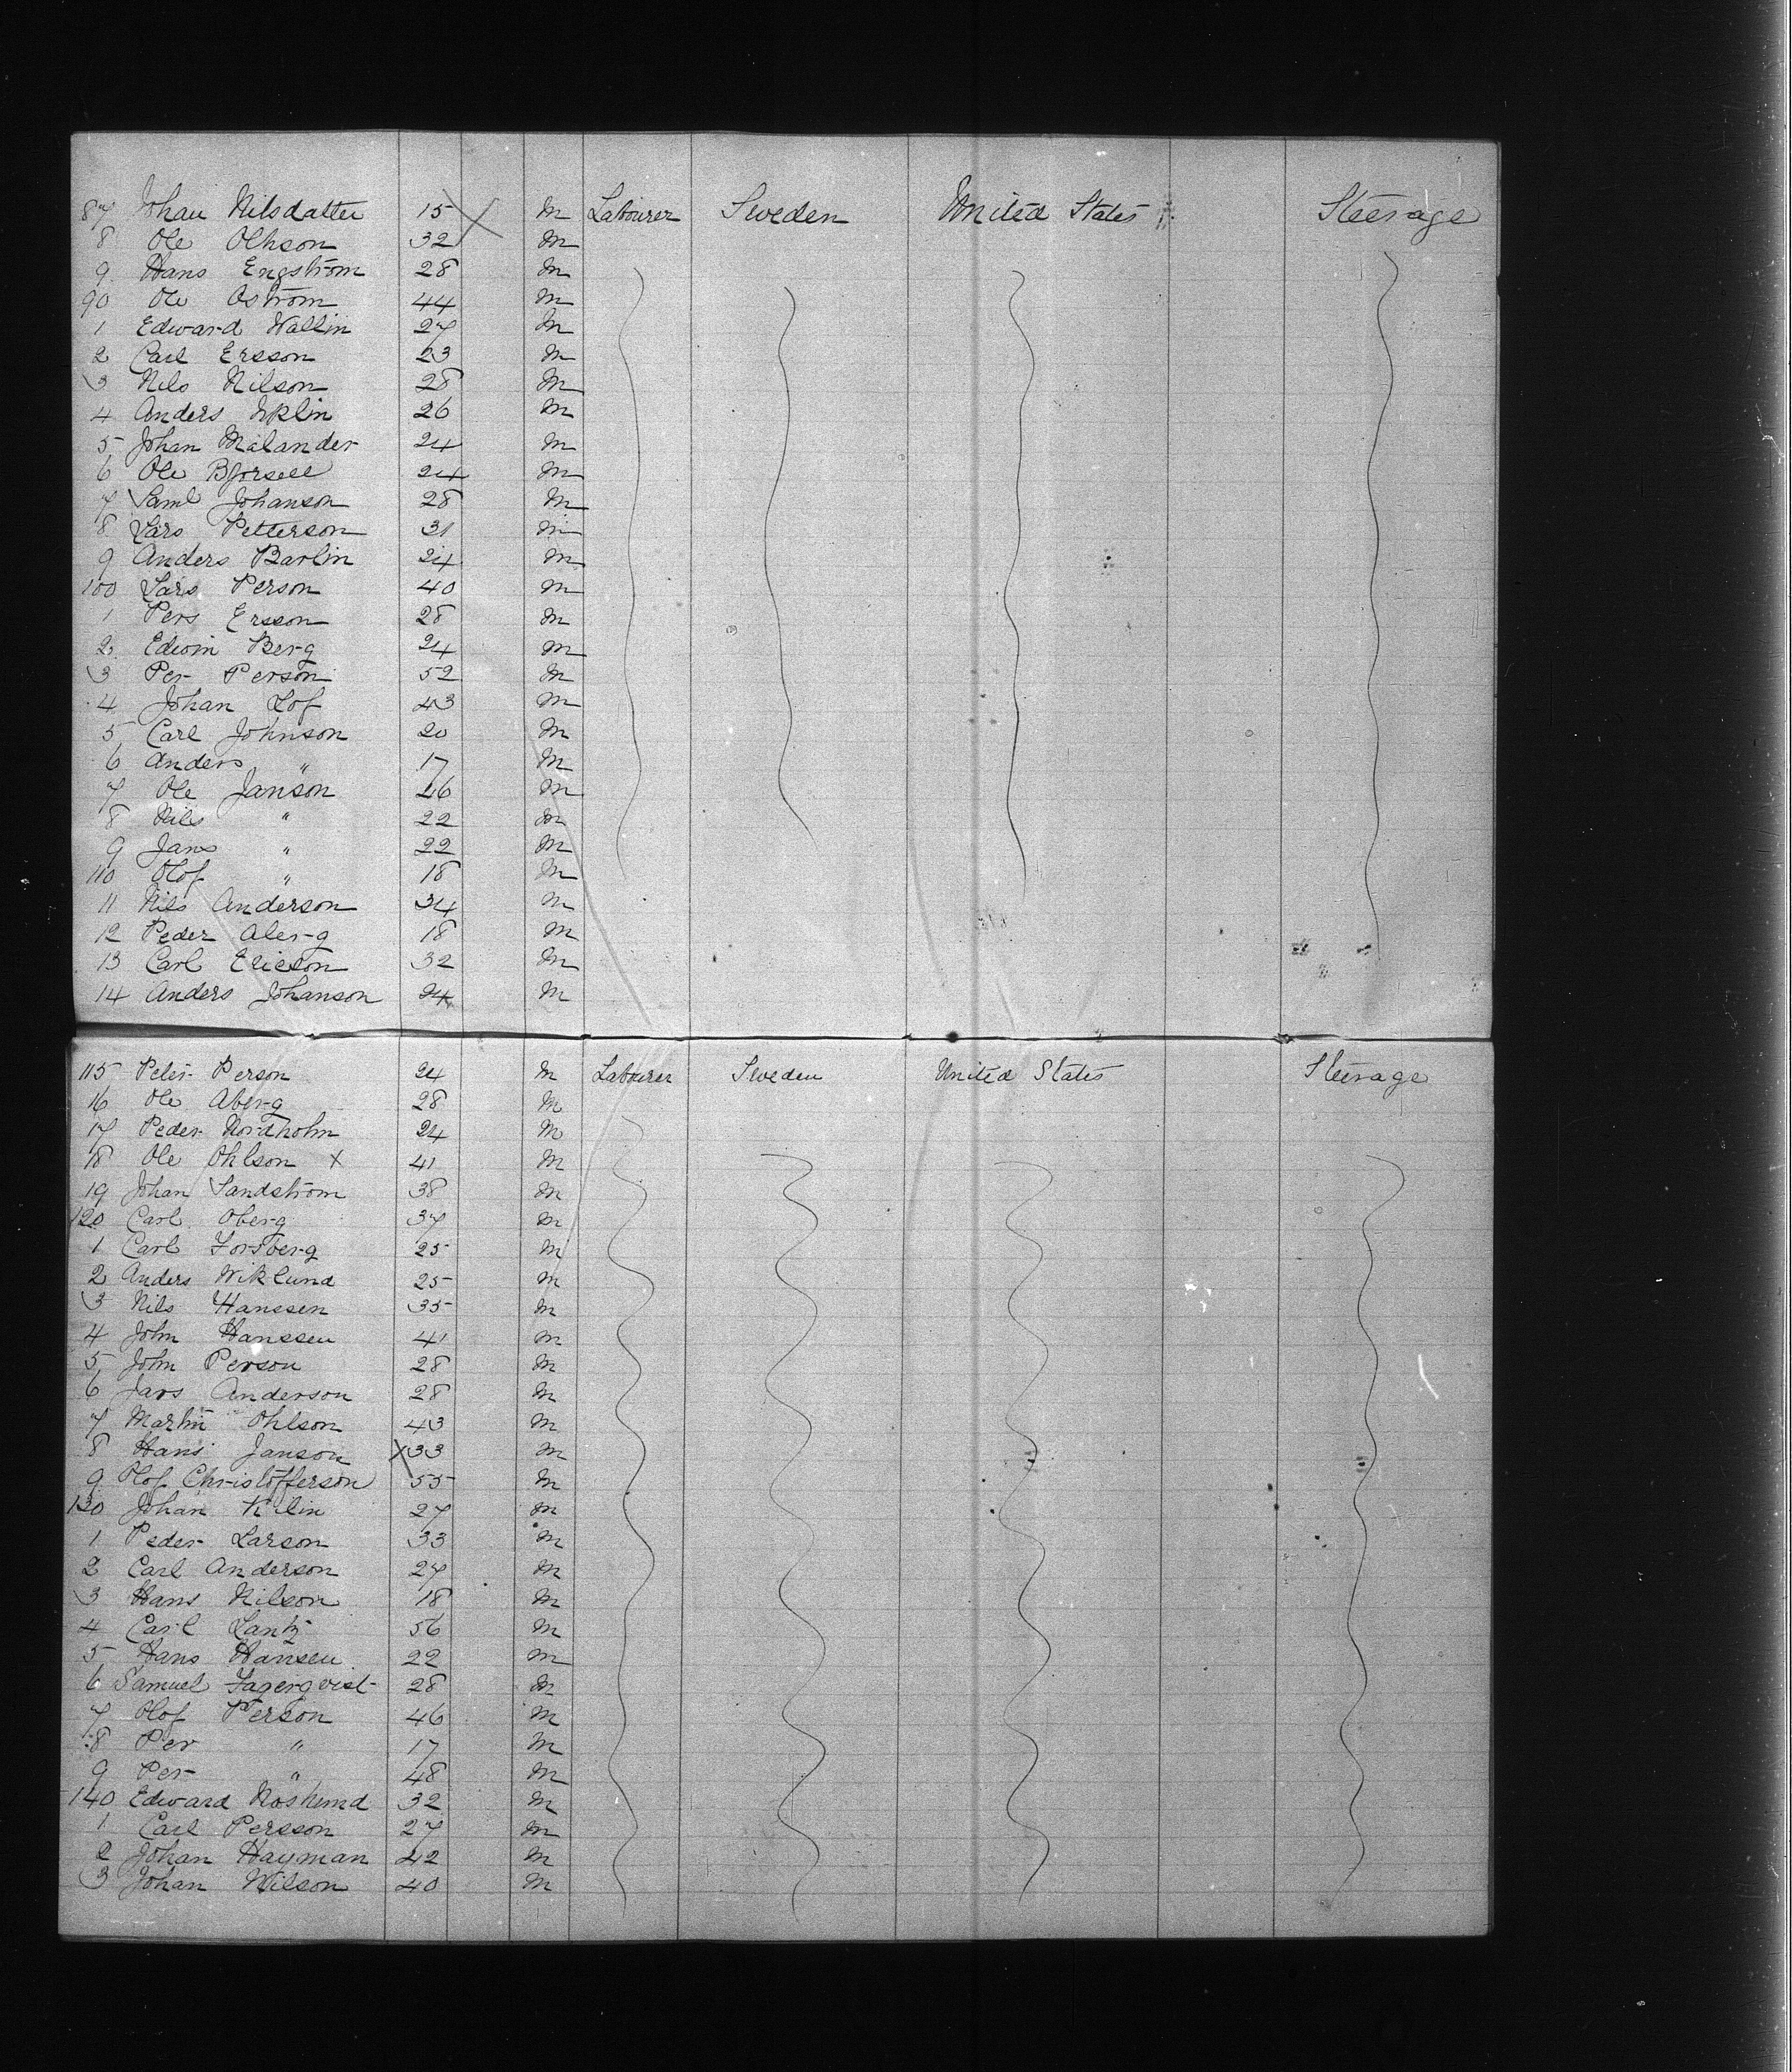 87 Johan Nilsdatter 15 M Labourer Sweden United States Steerage
8 Ole Olhson 32 M
9 Hans Engstrom 28 M
90 Ole Ostrom 44 M
1 Edward Wallin 27 M
2 Carl Ersson 23 M
3 Nils Nilson 28 M
4 Anders Eklin 26 M
5 Johan Malander 24 M
6 Ole Bjorsell 24 M
7 Saml Johanson 28 M
8 Lars Petterson 31 M
9 Anders Barlin 24 M
100 Lars Person 40 M
1 Pers Ersson 28 M
2 Edwin Berg 24 M
3 Per Person 52 M
4 Johan Lof 43 M
5 Carl Johnson 20 M
6 Anders " 17 M
7 Ole Janson 46 M
8 Nils " 22 M
9 Jans " 22 M
110 Olof " 18 M
11 Nils Anderson 34 M
12 Peder Aberg 18 M
13 Carl Ericson 32 M
14 Anders Johanson 24 M
115 Peter Person 24 M Labourer Sweden United States Steerage
16 Ole Aberg 28 M
17 Peder Nordholm 24 M
18 Ole Ohlson X 41 M
19 Johan Sandstrom 38 M
120 Carl Oberg 37 M
1 Carl Forsberg 25 M
2 Anders Wiklund 25 M
3 Nils Hanssen 35 M
4 John Hanssen 41 M
5 John Person 28 M
6 Jars Anderson 28 M
7 Martin Ohlson 43 M
8 Hans Janson X 33 M
9 Olof Christofferson 55 M
130 Johan Kilin 27 M
1 Peder Larson 33 M
2 Carl Anderson 27 M
3 Hans Nilson 18 M
4 Carl Lantz 56 M
5 Hans Hansen 22 M
6 Samuel Fagerqvist 28 M
7 Olof Person 46 M
8 Per " 17 M
9 Per " 48 M
140 Edward 32 M
1 Carl Persson 27 M
2 Johan Hayman 42 M
3 Johan Wilson 40 M